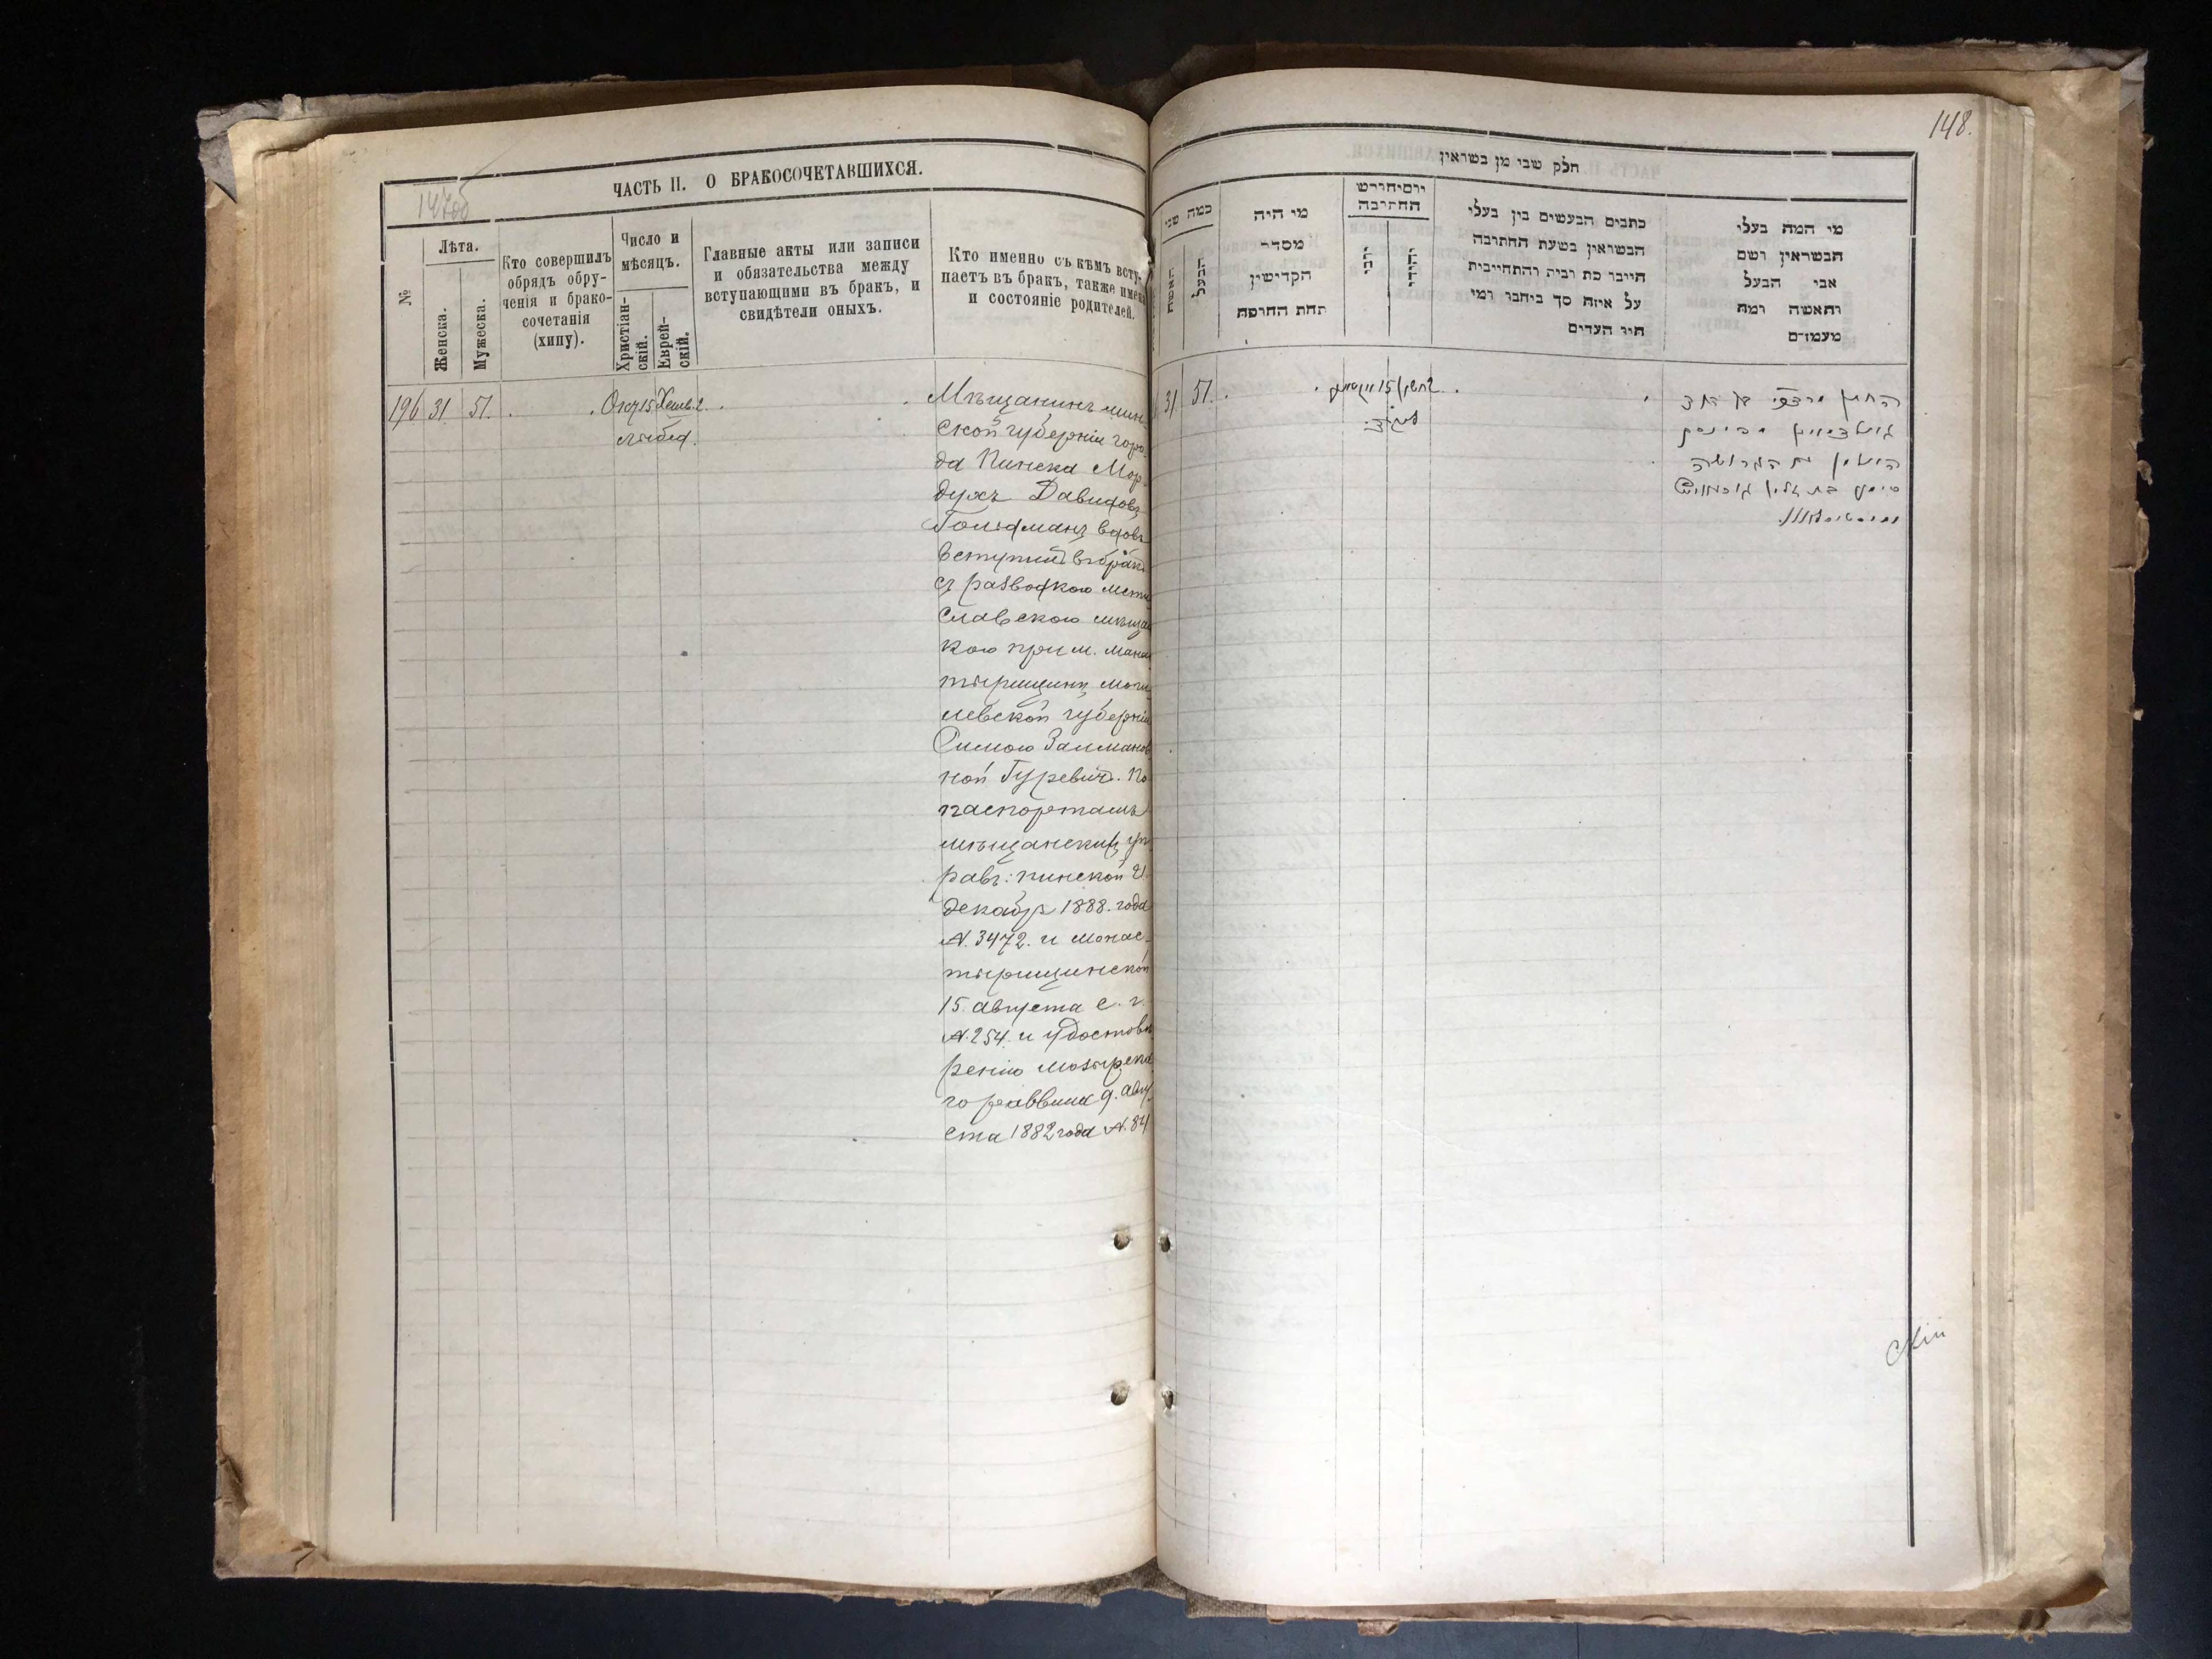 147об
ЧАСТЬ II. О БРАКОСОЧЕТАВШИХСЯ.
№
Лѣта.
Женска.
Мужеска.
Кто совершилъ
обрядъ обру-
ченія и брако-
сочетанія
(хипу).
Число и
мѣсяцъ.
Христіан-
скій.
Еврей-
скій.
Главные акты или записи
и обязательства между
вступающими въ бракъ, и
свидѣтели оныхъ.
Кто именно съ кѣмъ всту-
паетъ въ бракъ, также имена
и состояніе родителей.
196 31 51. Окт 15 Хешв. 2.
Мѣщанинъ мин-
ской губерніи горо-
да Пинска Мор-
духъ Давидовъ
Гольдманъ вдовъ
вступилъ въ бракъ
съ разводкою мсти
славскою мѣщан
кою при м. Монас
тырщинѣ моги
левской губерніи
Симою Залманов
ной Гуревичъ. По
паспортамъ
мѣщанскихъ уп
равъ: пинской 21.
декабря 1888. года
№. 3472. и монас-
тырщинской
15 августа с. г.
№. 254. и удостовѣ
ренію мозырска
го раввина 9. авгу
ста 1882 года №. 84
148.
חלק שני מן בשראין
כמה שני
האשה
הבעל
מי היה
מסדר
הקדישין
תחת החופה
יום וחודש
החתונה
כתבים הנעשים בין בעלי
הנשואין בשעת החתונה
על איזה סך ביחבו ומי
היו העדים
מי המה בעלי
הנשואין ושם
אבי הבעל
והאשה ומה
מעמדם
31. 51.
החתן מרדכי בן דוד
גאלדמאן מפינסק
האלמן עם הגרושה
סימע בת זלמן גורעוויטש